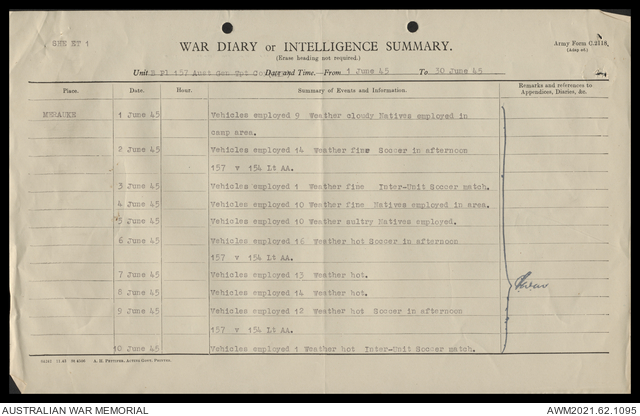 SHE ET 1
WAR DIARY or INTELLIGENCE SUMMARY.
(Erase heading not required.)
Army Form C.2118.
Unit B Pl 157 Aust Gen Tpt Coy Date and Time.—From 1 June 45 To 30 June 45
Place. Date. Hour. Summary of Events and Information. Remarks and references to Appendices, Diaries, &c.
MERAUKE 1 June 45 Vehicles employed 9 Weather cloudy Natives employed in
camp area.
2 June 45 Vehicles employed 14 Weather fine Soccer in afternoon
157 v 154 Lt AA.
3 June 45 Vehicles employed 1 Weather fine Inter-Unit Soccer match.
4 June 45 Vehicles employed 10 Weather fine Natives employed in area.
5 June 45 Vehicles employed 10 Weather sultry Natives employed.
6 June 45 Vehicles employed 16 Weather hot Soccer in afternoon
157 v 154 Lt AA.
7 June 45 Vehicles employed 13 Weather hot.
8 June 45 Vehicles employed 14 Weather hot.
9 June 45 Vehicles employed 12 Weather hot Soccer in afternoon
157 v 154 Lt AA.
10 June 45 Vehicles employed 1 Weather hot Inter-Unit Soccer match.
AUSTRALIAN WAR MEMORIAL AWM2021.62.1095